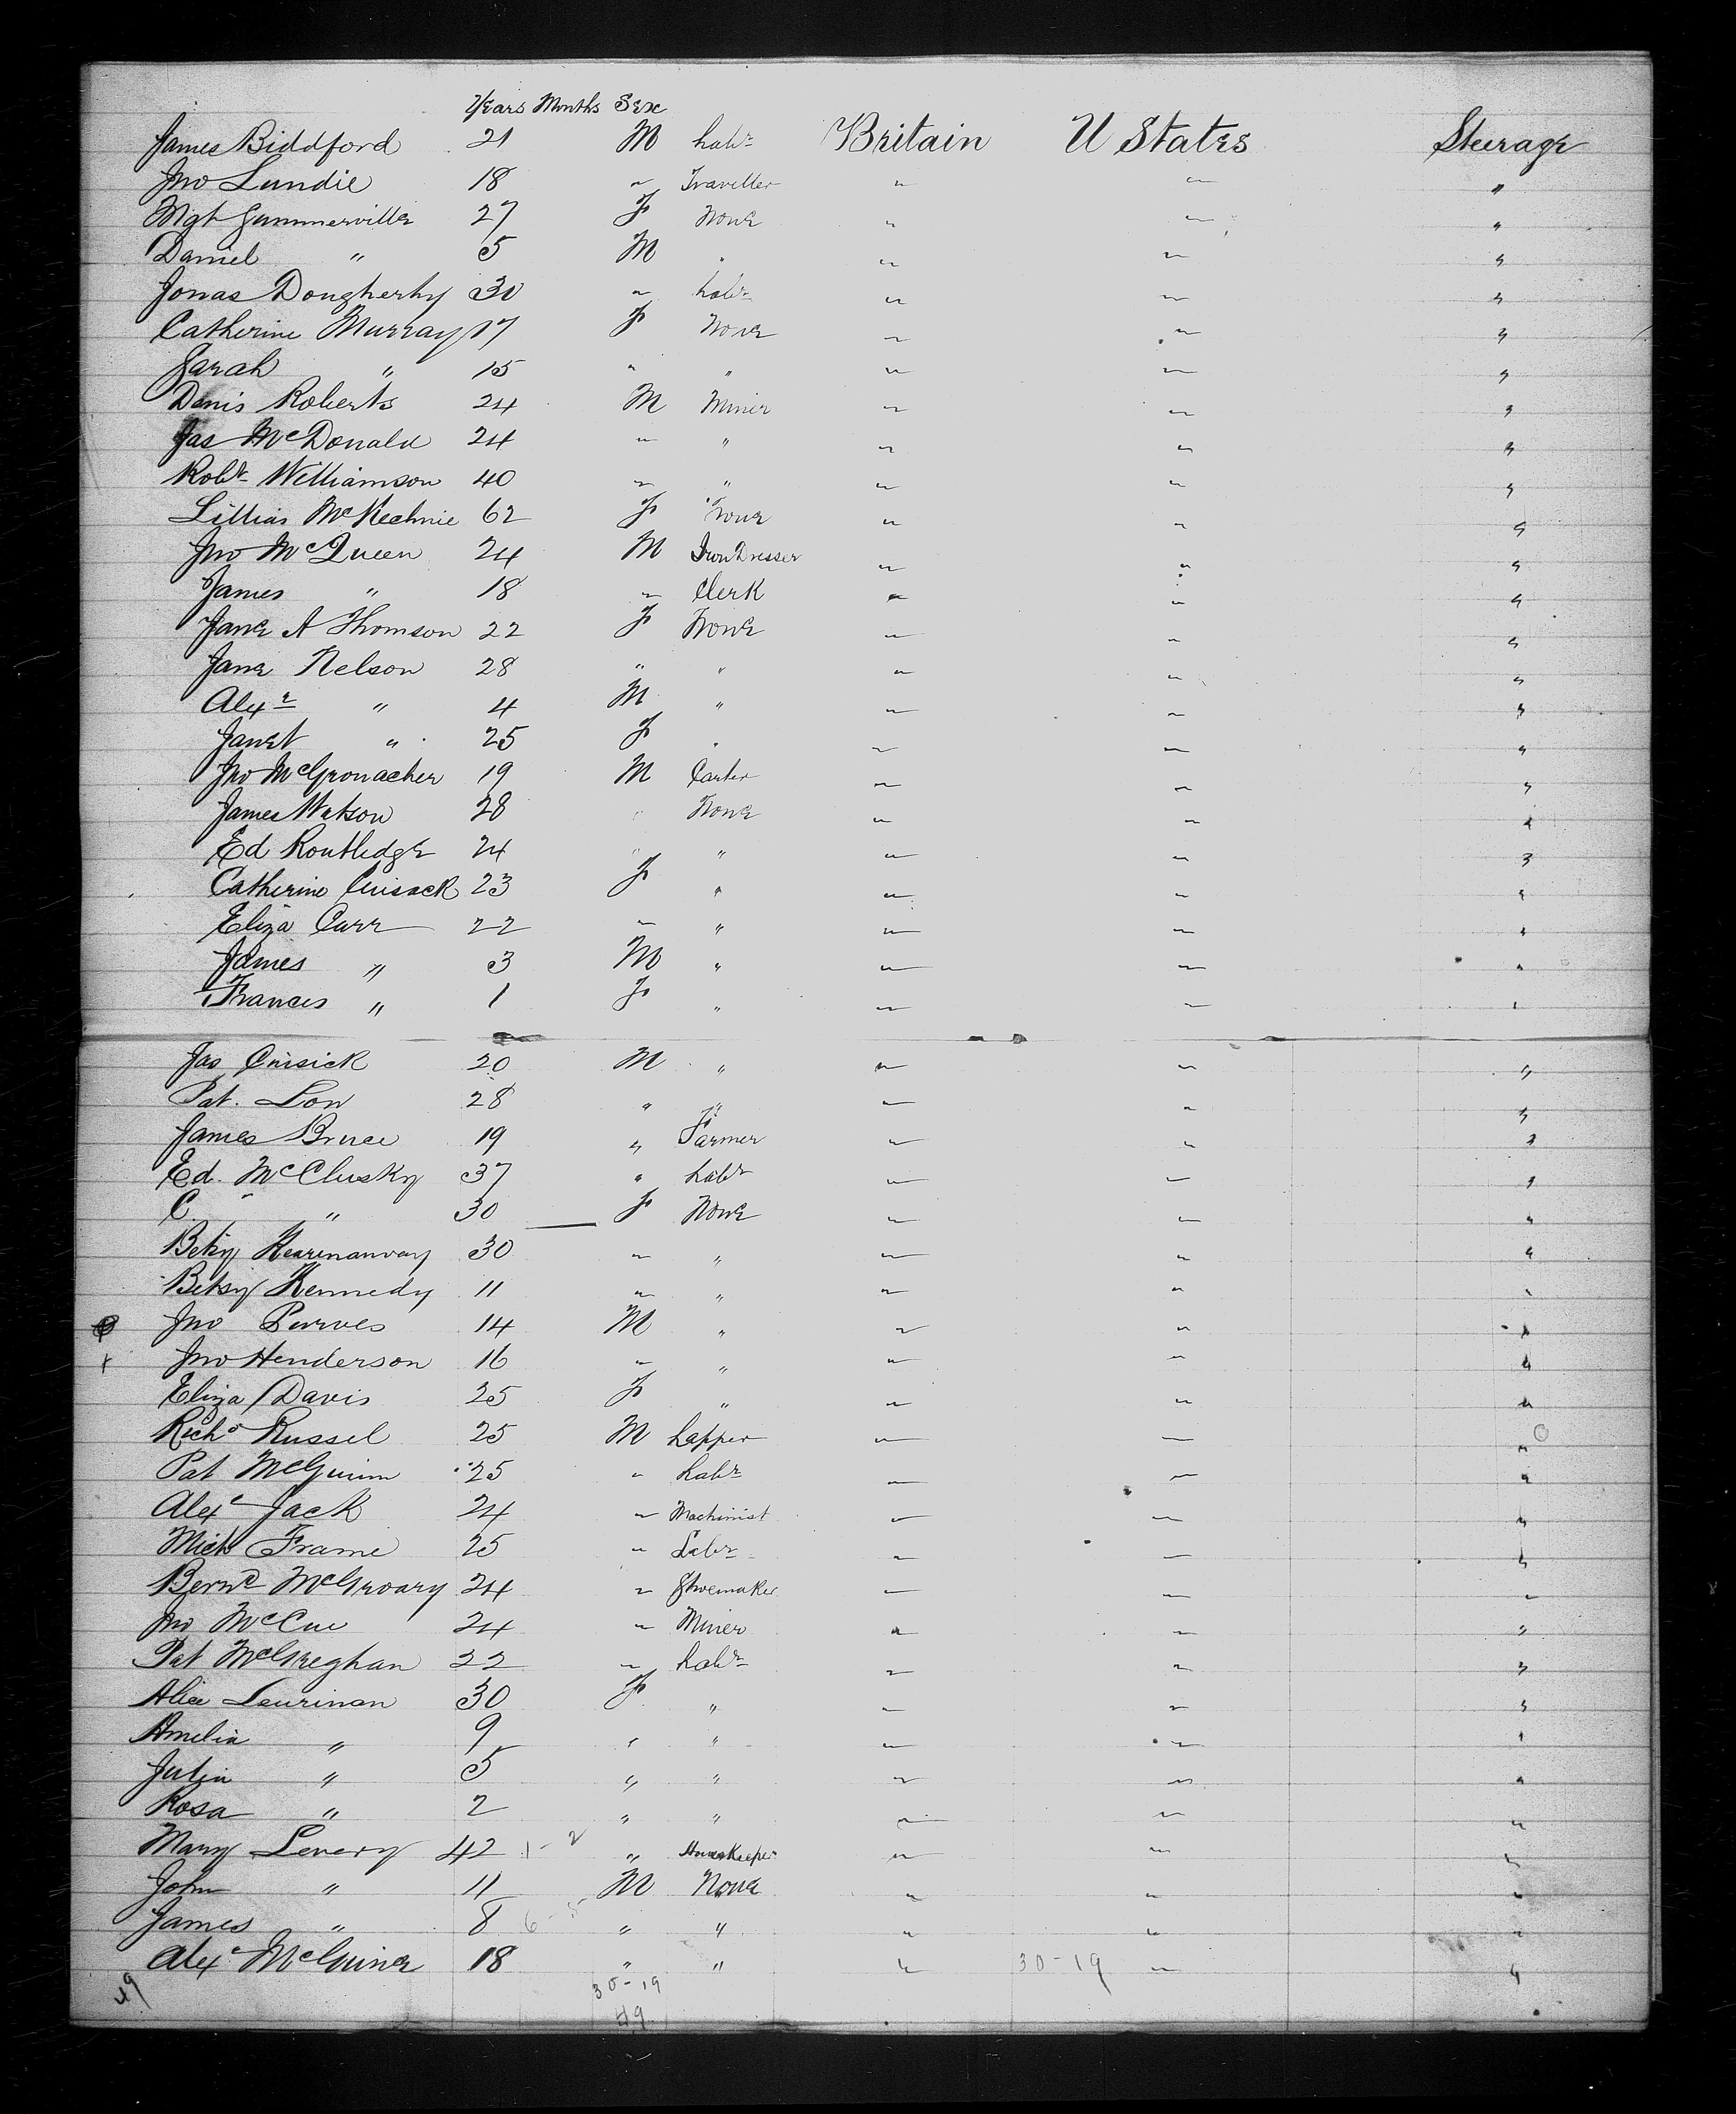 Years Months Sex
James Biddford 21 M Labr Britain U States Steerage
Jno Lundie 18 " Traveller " " "
Mgt Summerville 27 F None " " "
Daniel " 5 M " " " "
Jonas Dougherty 30 " Labr " " "
Catherine Murray 17 F None " " "
Sarah " 15 " " " " "
Denis Roberts 24 M Miner " " "
Jas McDonald 24 " " " " "
Robt Williamson 40 " " " " "
Lillias McKechnie 62 F None " " "
Jno McQueen 24 M Iron Dresser " " "
James " 18 " Clerk " " "
Jane A Thomson 22 F None " " "
Jane Nelson 28 " " " " "
Alexr " 4 M " " " "
Janet " 25 F " " " "
Jno McGronacher 19 M Carter " " "
James Watson 28 " None " " "
Ed Routledge 24 " " " " "
Catherine Cusack 23 F " " " "
Eliza Carr 22 " " " " "
James " 3 M " " " "
Frances " 1 F " " " "
Jas Cusick 20 M " " " "
Pat. Low 28 " " " " "
James Bruce 19 " Farmer " " "
Ed. McClusky 37 " Labr " " "
C. " 30 F None " " "
Betsy 30 " " " " "
Betsy Kennedy 11 " " " " "
Jno Purves 14 M " " " "
Jno Henderson 16 " " " " "
Eliza Davis 25 F " " " "
Richd Russel 25 M Lapper " " "
Pat McGuinn 25 " Labr " " "
Alex Jack 24 " Machinist " " "
Mich Frame 25 " Labr " " "
Bernd McGroary 24 " Shoemaker " " "
Jno McCue 24 " Miner " " "
Pat McGreghan 22 " Labr " " "
Alice Leurinan 30 F " " " "
Amelia " 9 " " " " "
Julia " 5 " " " " "
Rosa " 2 " " " " "
Mary Lenery 42 1-2 " Housekeeper " " "
John " 11 M None " " "
James " 8 " " " " "
Alex McGuiner 18 " " " 30-19 " "
49 30-19
49